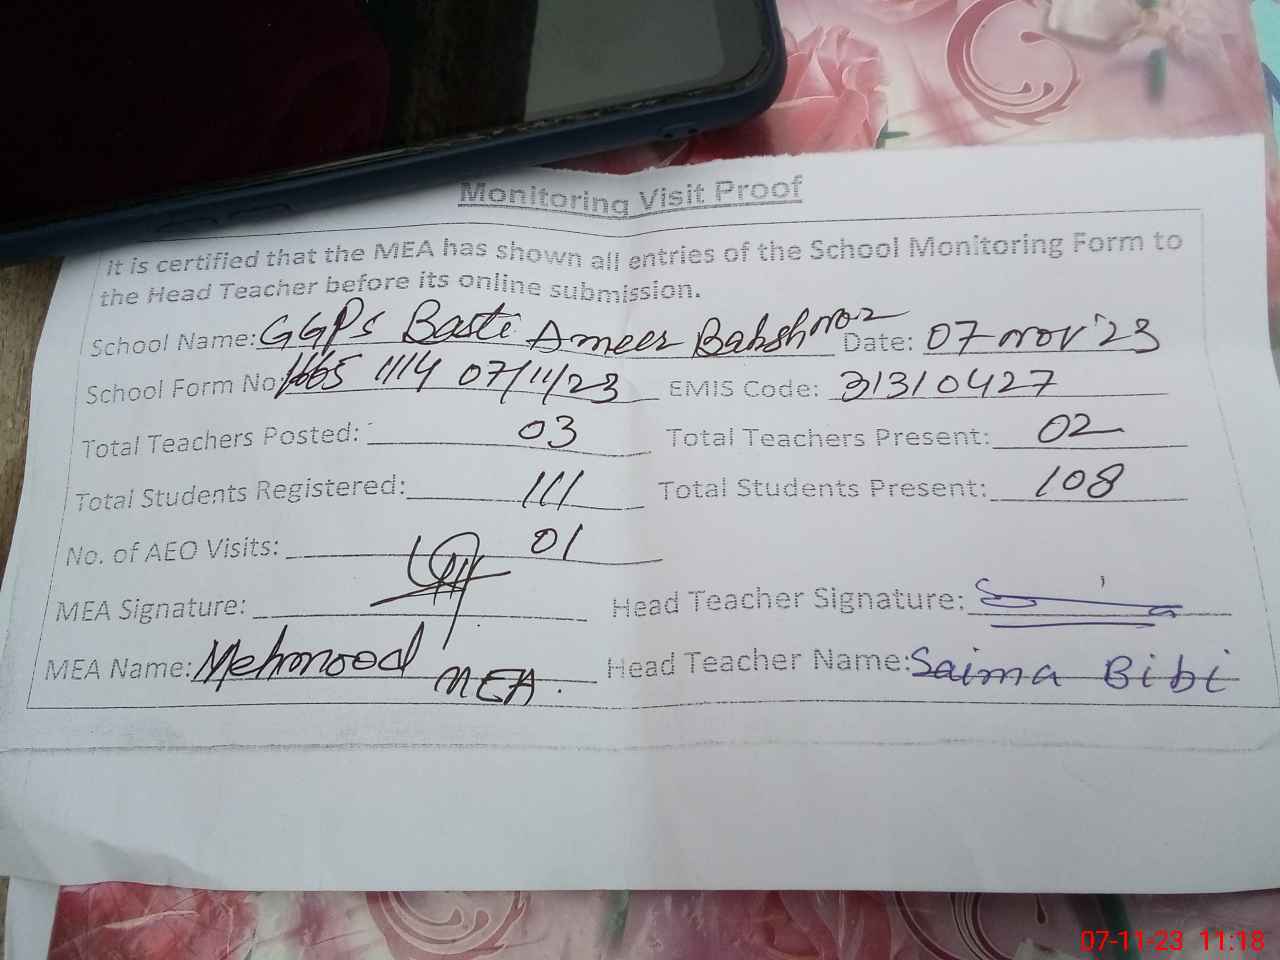 Monitoring Visit Proof
It is certified that the MEA has shown all entries of the School Monitoring Form to
the Head Teacher before its online submission.
School Name: GGPS Basti Ameer Bakhsh no 2 Date: 07 nov'23
School Form No: 1114 07/11/23 EMIS Code: 31310427
Total Teachers Posted: 03 Total Teachers Present: 02
Total Students Registered: 111 Total Students Present: 108
No. of AEO Visits: 01
MEA Signature: Head Teacher Signature:
MEA Name: Mehmood MEA. Head Teacher Name: Saima Bibi
07-11-23 11:18